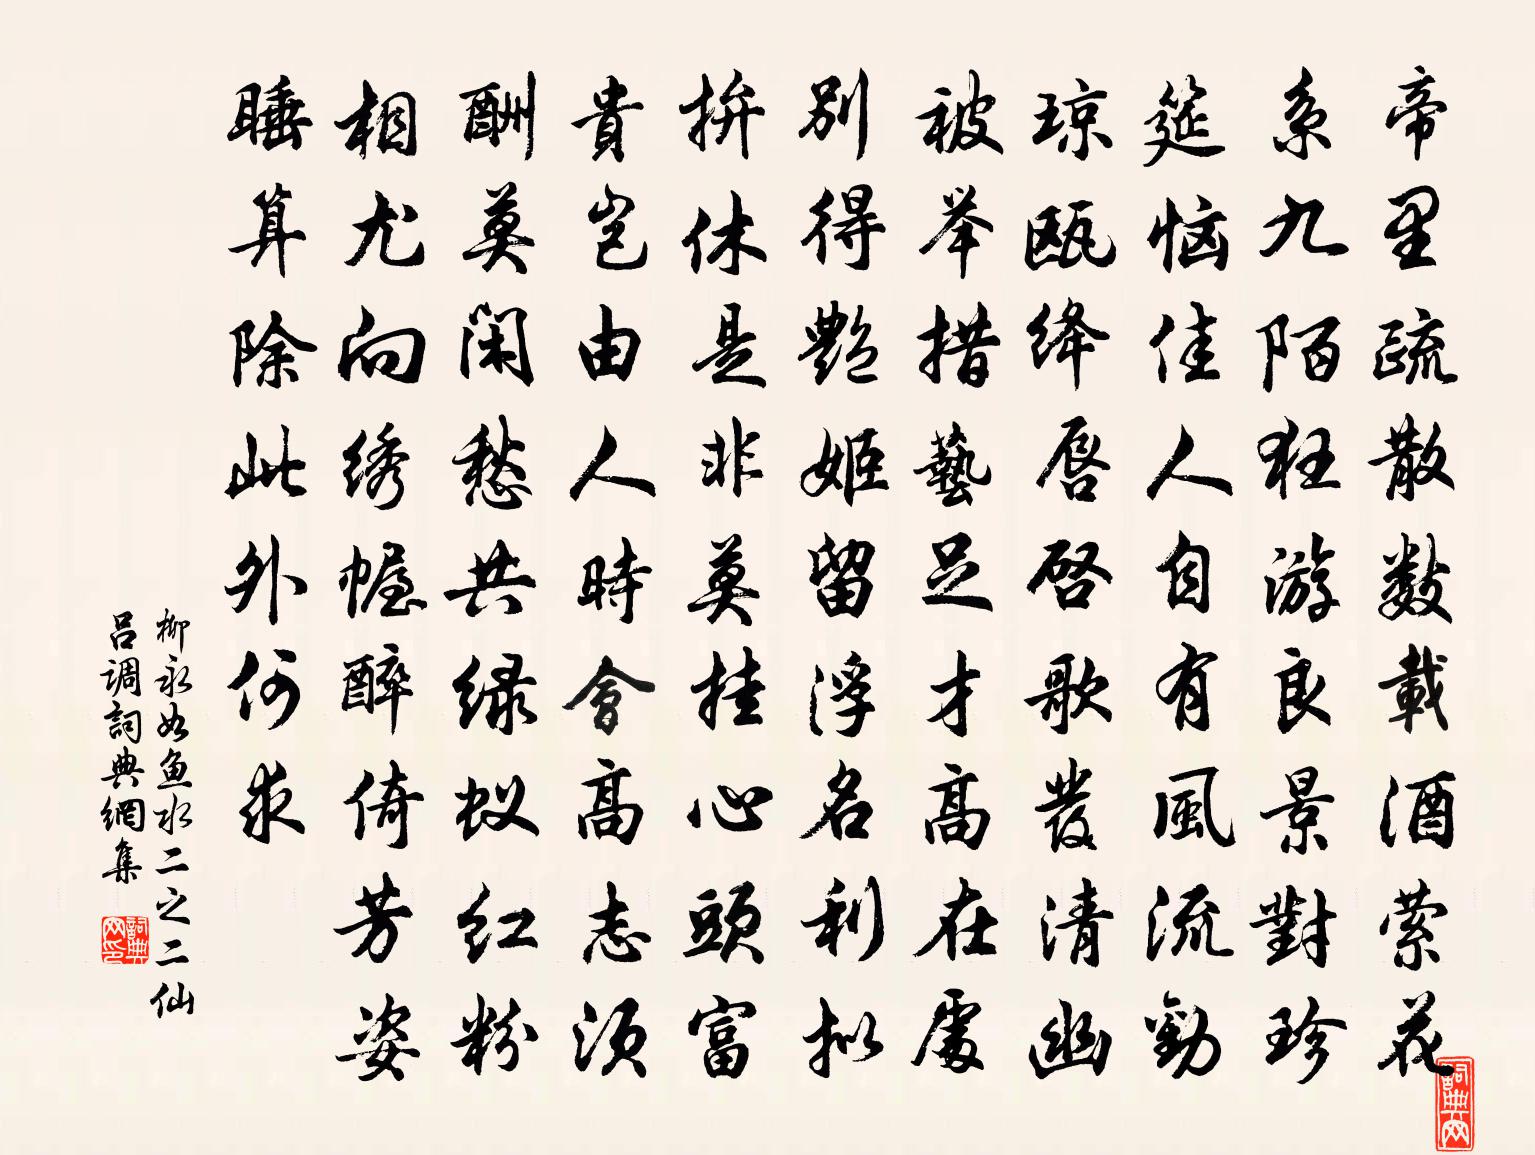 帝里疏散数載酒萦花
系九陌狂游良景對珍
筵恼佳人自有風流勸
琼瓯绛唇启歌發清幽
被举措藝足才高在處
别得艷姬留浮名利拟
拚休是非莫挂心頭富
貴岂由人時會高志须
酬莫闲愁共绿蚁红粉
相尤向绣幄醉倚芳姿
睡算除此外何求
柳永如鱼水二之二仙
吕調詞典網集
詞典网印
詞典网